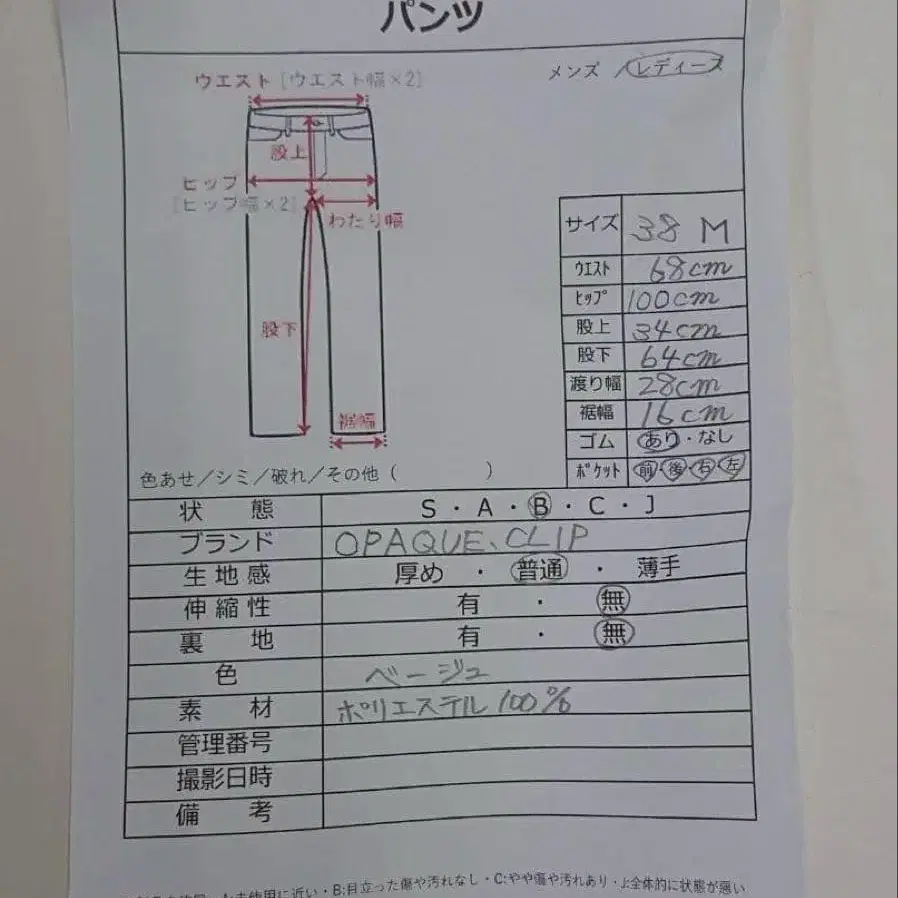 パンツ
メンズ / レディース
ウエスト [ウエスト幅×2]
股上
ヒップ
[ヒップ幅×2]
わたり幅
股下
裾幅
サイズ 38 M
ウエスト 68cm
ヒップ 100cm
股上 34cm
股下 64cm
渡り幅 28cm
裾幅 16cm
ゴム あり・なし
ポケット 前・後・右・左
色あせ/シミ/破れ/その他 ( )
状 態 S・A・B・C・J
ブランド OPAQUE、CLIP
生地感 厚め ・ 普通 ・ 薄手
伸縮性 有 ・ 無
裏 地 有 ・ 無
色 ベージュ
素 材 ポリエステル 100%
管理番号
撮影日時
備 考
未使用に近い・B:目立った傷や汚れなし・C:やや傷や汚れあり・J:全体的に状態が悪い